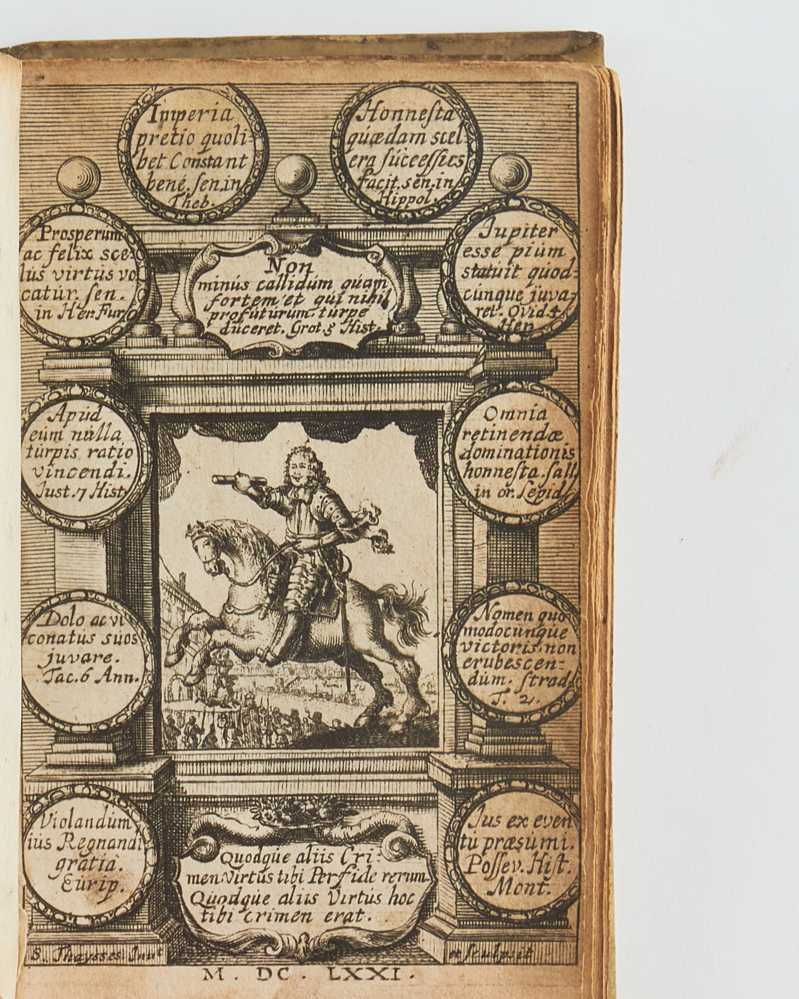 Imperia
pretio quoli-
bet Constant
bené. sen. in
Theb.
Honnesta
quædam scel-
era successus
facit. sen. in
Hippol.
Prosperum
ac felix sce-
lus virtus vo
catur. sen.
in Her. Fur.
Non
minus callidum quam
fortem et qui nihil
profuturum turpe
duceret. Grot. 8 Hist.
Jupiter
esse pium
statuit quod-
cunque juva-
ret. Ovid 4
Apud
eum nulla
turpis ratio
vincendi.
Just. 7 Hist
Omnia
retinendæ
dominationis
honnesta. sall
in or. Lepid.
Dolo ac vi
conatus suos
juvare.
Tac. 6 Ann.
Nomen quo
modocunque
victoris non
erubescen-
dum. strad
T. 2.
Violandum
ius Regnandi
gratia.
Eurip.
Quodque aliis Cri-
men Virtus tibi Perfide rerum
Quodque aliis Virtus hoc
tibi crimen erat.
Jus ex even
tu præsumi.
Possev. Hist.
Mont.
S. Thaysses Inut
et sculpsit
M. DC. LXXI.